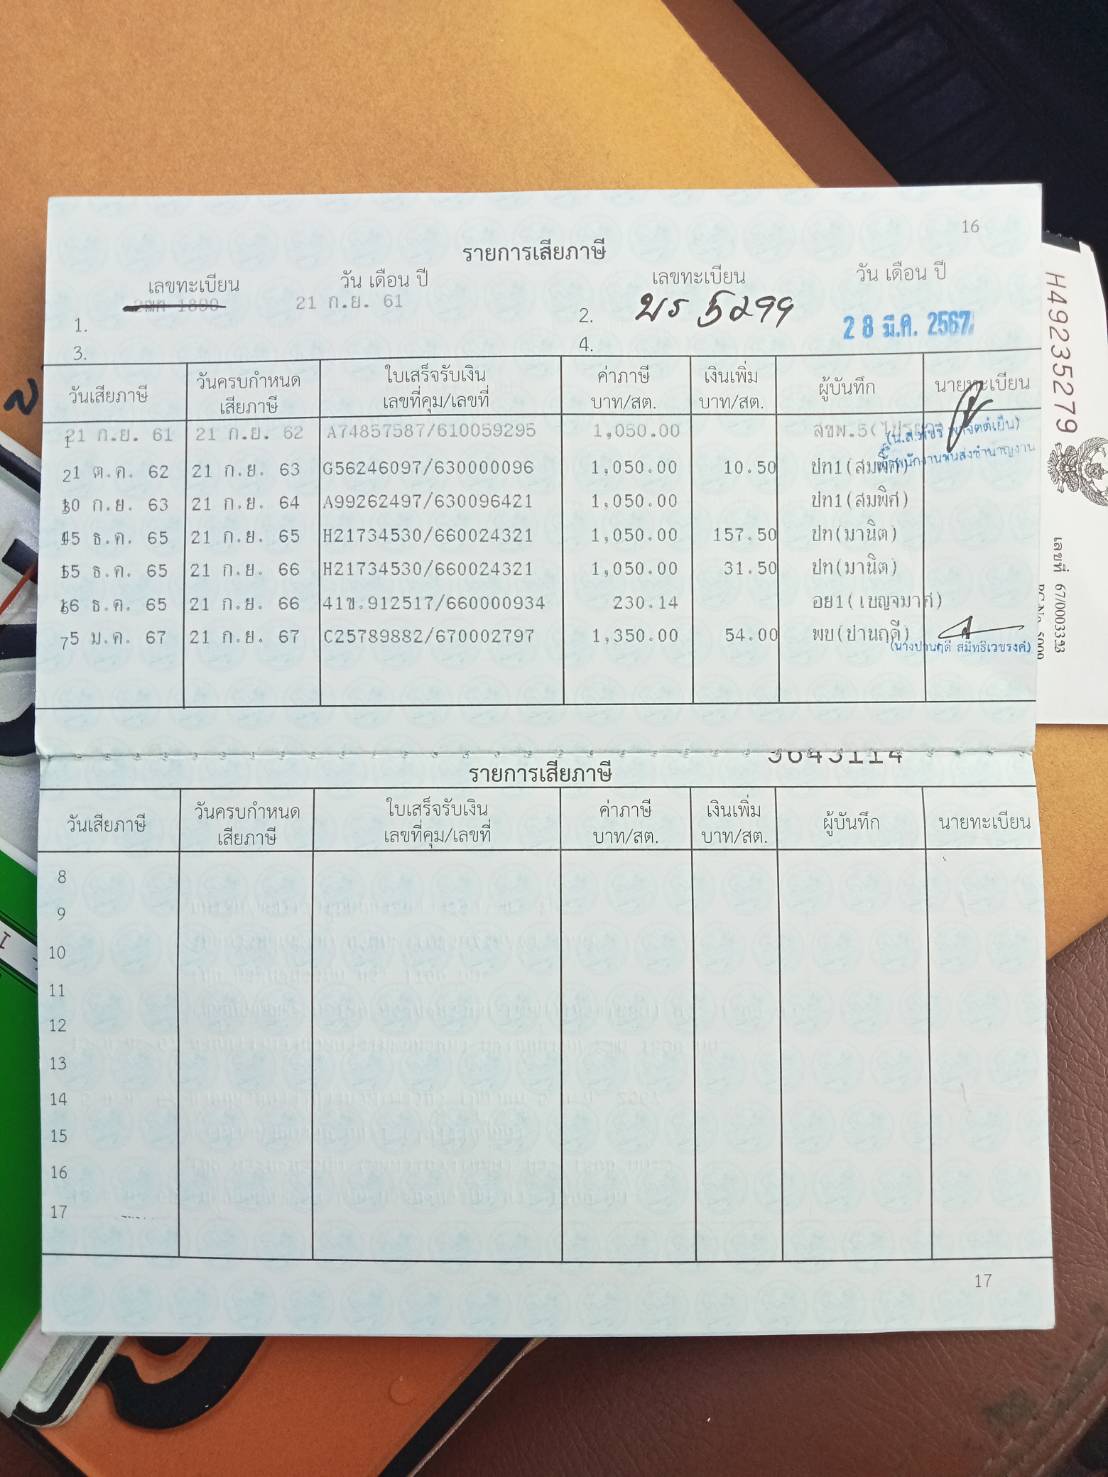 16
รายการเสียภาษี
เลขทะเบียน วัน เดือน ปี เลขทะเบียน วัน เดือน ปี
1. 21 ก.ย. 61 2. บร 5299 28 มี.ค. 2567
3. 4.
วันเสียภาษี วันครบกำหนดเสียภาษี ใบเสร็จรับเงิน เลขที่คุม/เลขที่ ค่าภาษี บาท/สต. เงินเพิ่ม บาท/สต. ผู้บันทึก นายทะเบียน
21 ก.ย. 61 21 ก.ย. 62 A74857587/610059295 1,050.00 สขพ.5
21 ต.ค. 62 21 ก.ย. 63 G56246097/630000096 1,050.00 10.50 ปท1(สมพิศ)
30 ก.ย. 63 21 ก.ย. 64 A99262497/630096421 1,050.00 ปท1(สมพิศ)
15 ธ.ค. 65 21 ก.ย. 65 H21734530/660024321 1,050.00 157.50 ปท(มานิต)
15 ธ.ค. 65 21 ก.ย. 66 H21734530/660024321 1,050.00 31.50 ปท(มานิต)
16 ธ.ค. 65 21 ก.ย. 66 41ข.912517/660000934 230.14 อย1(เบญจมาศ)
7 5 ม.ค. 67 21 ก.ย. 67 C25789882/670002797 1,350.00 54.00 พบ(ปานฤดี)
(นางปานฤดี สมิทธิเวชรงค์)
รายการเสียภาษี
วันเสียภาษี วันครบกำหนดเสียภาษี ใบเสร็จรับเงิน เลขที่คุม/เลขที่ ค่าภาษี บาท/สต. เงินเพิ่ม บาท/สต. ผู้บันทึก นายทะเบียน
8
9
10
11
12
13
14
15
16
17
17
H49235279
เลขที่ 67/0003333